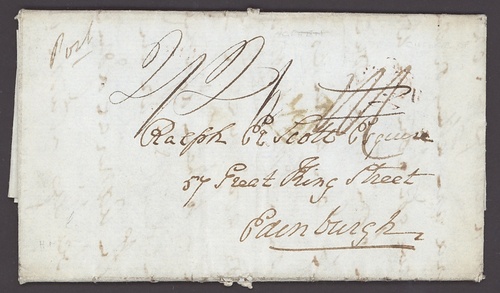 Post
2/2½
Ralph E Scott Esquire
57 Great King Street
Edinburgh